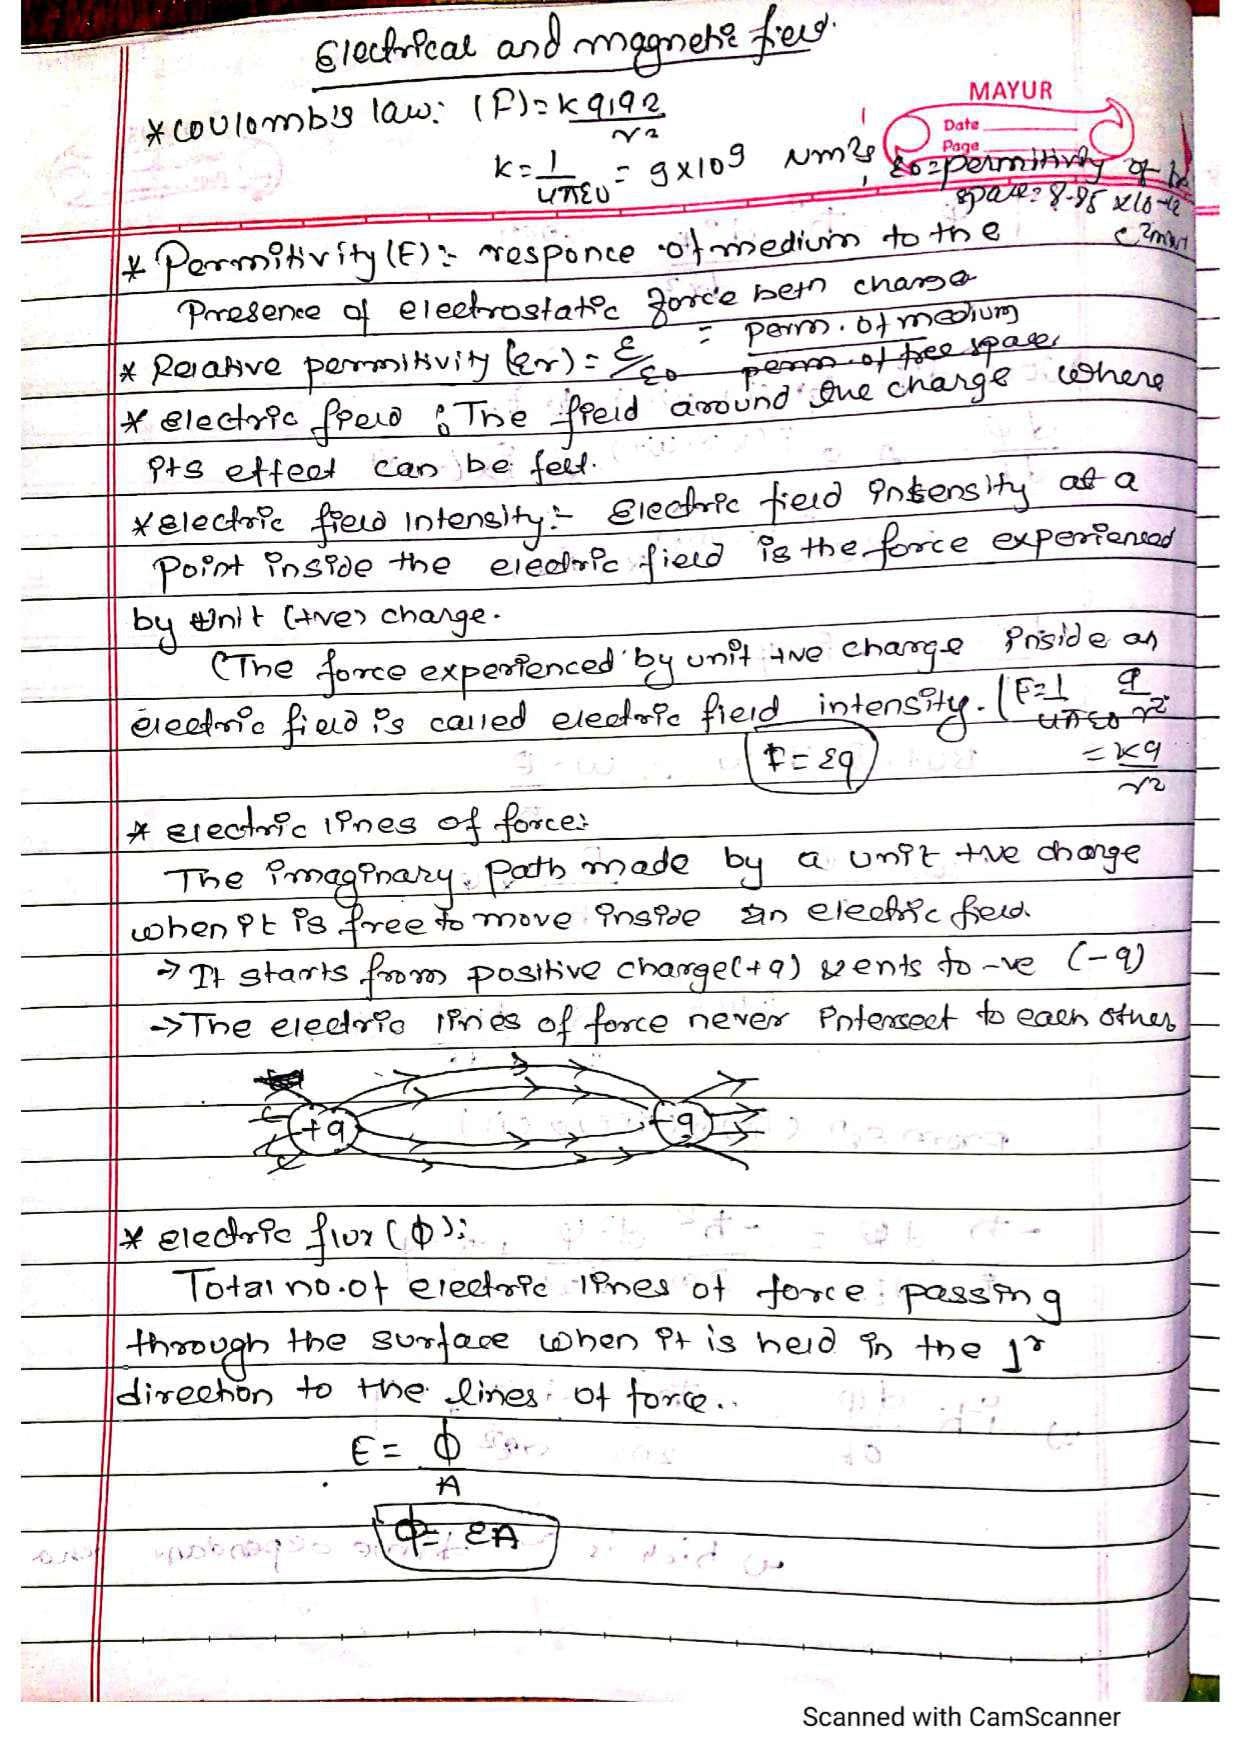 Electrical and magnetic field.
MAYUR
Date
Page
*coulomb's law: (F)=k q1q2/r2
k=1/4πε0 = 9x10^9 Nm2, ε0=permitivity of
space= 8.85 x10-12
* Permitivity(ε):- responce of medium to the
Presence of electrostatic force betn charge
* Relative permitivity(εr) = ε/ε0 = perm. of medium/perm. of free space.
* electric field : The field around the charge where
its effect can be felt.
*electric field intensity:- Electric field intensity at a
Point inside the electric field is the force experienced
by unit (+ve) charge.
(The force experienced by unit +ve charge inside an
electric field is called electric field intensity. (E=1/4πε0 q/r2
= kq/r2
F= Eq
* electric lines of force:
The imaginary path made by a unit +ve charge
when it is free to move inside an electric field.
→ It starts from positive charge(+q) & ents to -ve (-q)
→ The electric lines of force never intersect to each other
+q -q
* electric flux (ϕ):
Total no.of electric lines of force passing
through the surface when it is held in the ⊥r
direction to the lines of force..
E = ϕ/A
ϕ= EA
Scanned with CamScanner